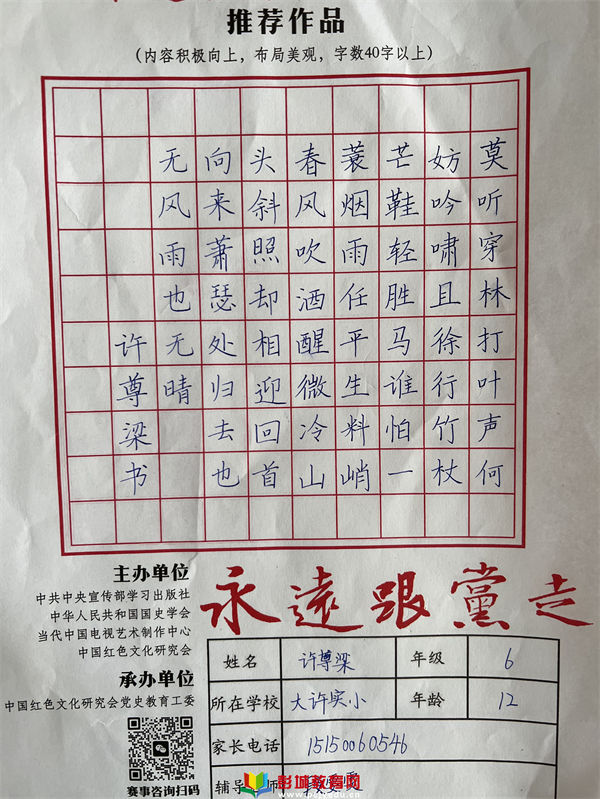 推荐作品
(内容积极向上，布局美观，字数40字以上)
莫听穿林打叶声何
妨吟啸且徐行竹杖
芒鞋轻胜马谁怕一
蓑烟雨任平生料峭
春风吹洒醒微冷山
头斜照却相迎回首
向来萧瑟处归去也
无风雨也无晴
许尊梁书
主办单位
中共中央宣传部学习出版社
中华人民共和国国史学会
当代中国电视艺术制作中心
中国红色文化研究会
承办单位
中国红色文化研究会党史教育工委
赛事咨询扫码
永遠跟黨走
姓名 许尊梁 年级 6
所在学校 大许实小 年龄 12
家长电话 15150060546
辅导 师
彭城教育网